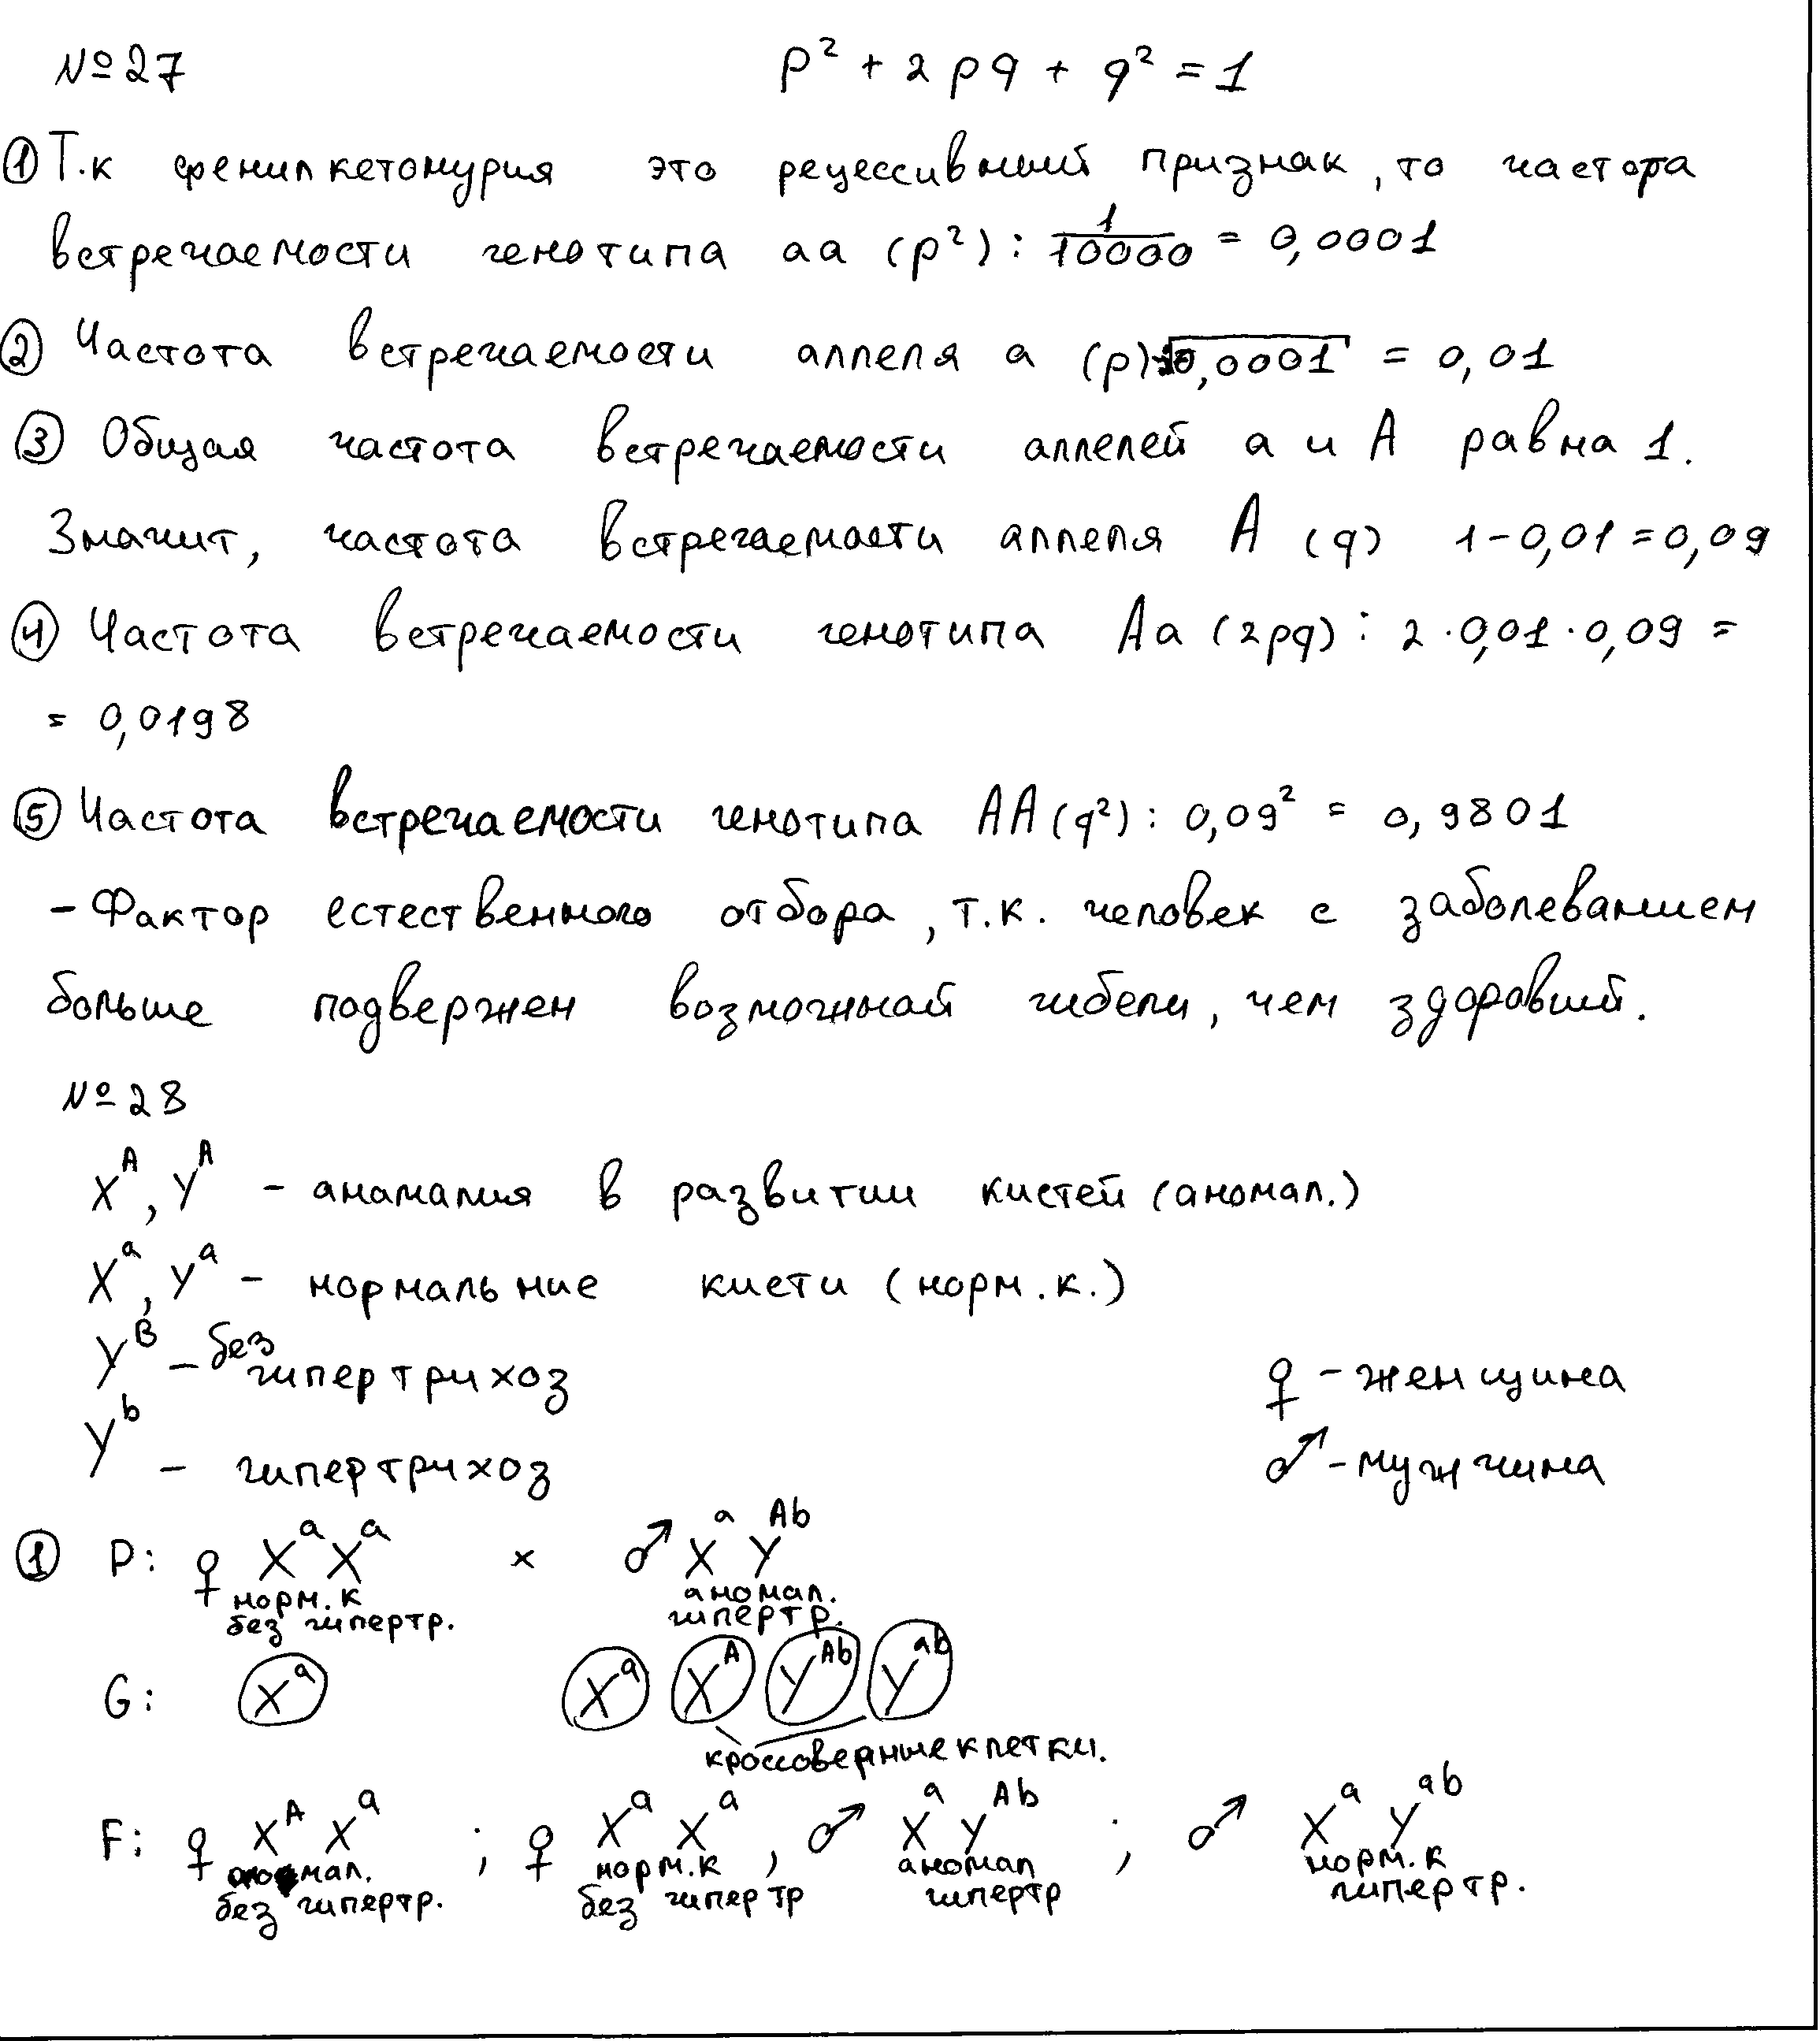 №27 p² + 2pq + q² = 1
① Т.к фенилкетонурия это рецессивный признак, то частота
встречаемости генотипа аа (p²): 1/10000 = 0,0001
② Частота встречаемости аллеля а (p) √0,0001 = 0,01
③ Общая частота встречаемости аллелей а и А равна 1.
Значит, частота встречаемости аллеля А (q) 1-0,01=0,09
④ Частота встречаемости генотипа Аа (2pq): 2·0,01·0,09 =
= 0,0198
⑤ Частота встречаемости генотипа АА (q²): 0,09² = 0,9801
- Фактор естественного отбора, т.к. человек с заболеванием
больше подвержен возможной гибели, чем здоровый.
№28
Xᴬ, Yᴬ - анамалия в развитии кистей (аномал.)
Xᵃ, Yᵃ - нормальные кисти (норм.к.)
Yᴮ - без гипертрихоз
♀ - женщина
Yᵇ - гипертрихоз
♂ - мужчина
① P: ♀ XᵃXᵃ × ♂ XᵃYᴬᵇ
норм.к аномал.
без гипертр. гипертр.
G: Xᵃ Xᵃ Xᴬ Yᴬᵇ Yᵃᵇ
кроссоверные клетки.
F: ♀ XᴬXᵃ ; ♀ XᵃXᵃ , ♂ XᵃYᴬᵇ ; ♂ XᵃYᵃᵇ
аномал. норм.к аномал норм.к
без гипертр. без гипертр гипертр гипертр.